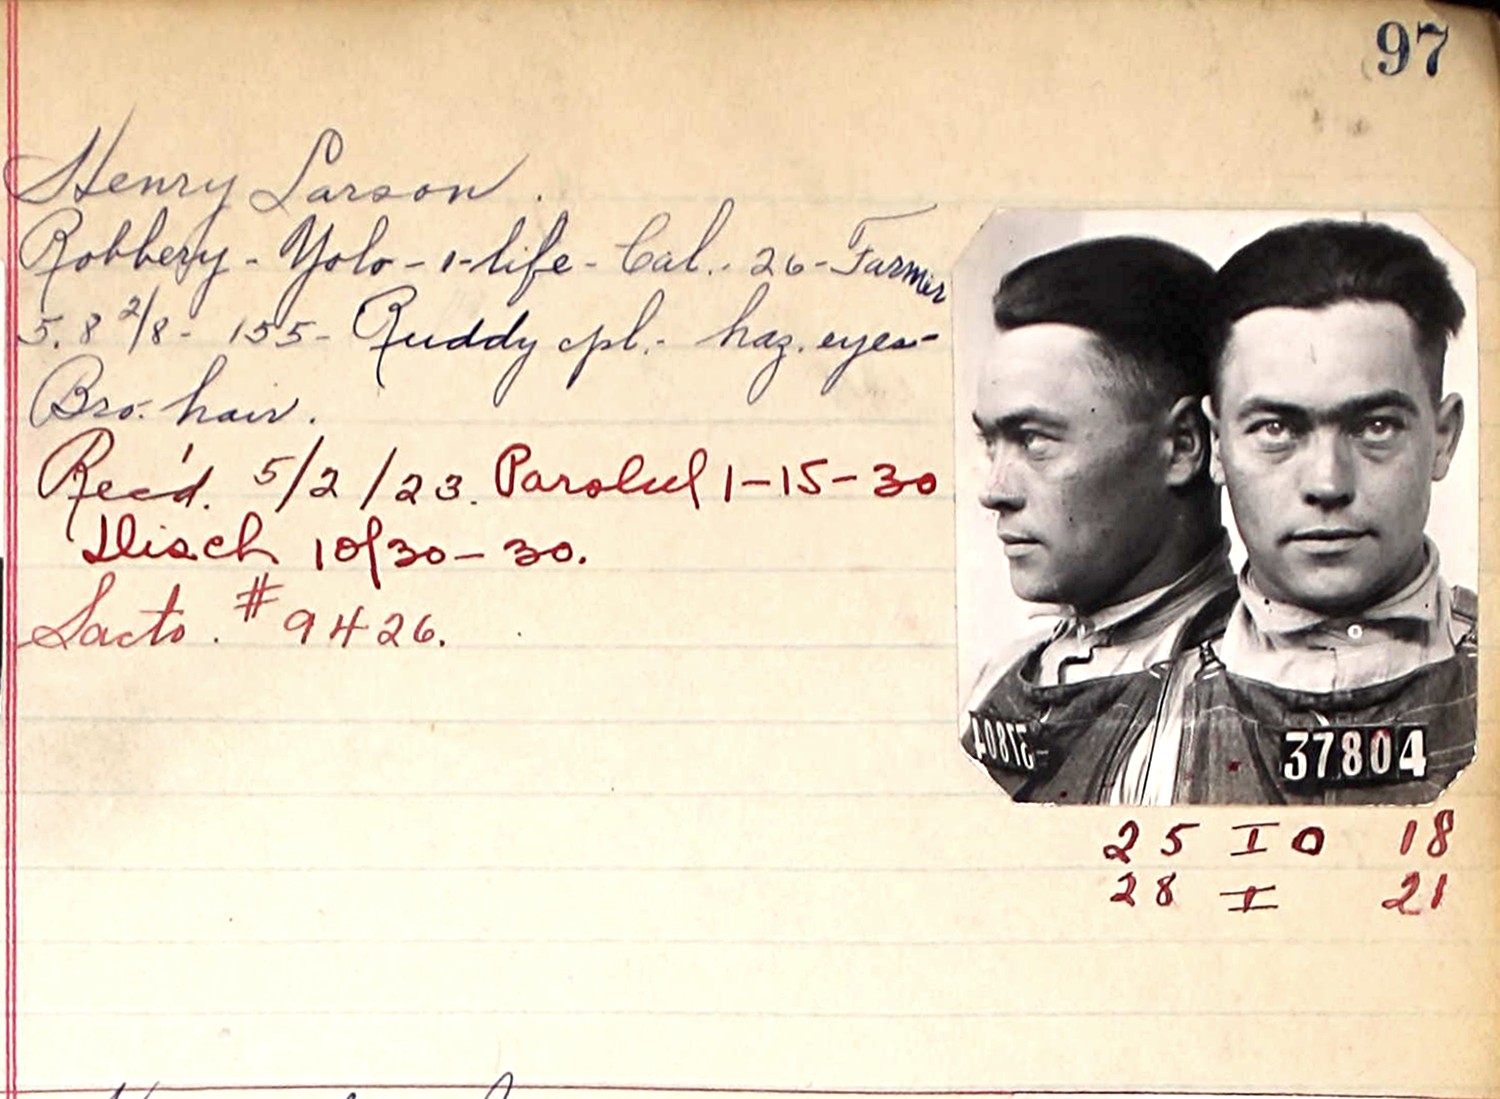 97
Henry Larson.
Robbery - Yolo - 1-life - Cal. - 26 - Farmer
5.8 2/8 - 155 - Ruddy cpl. - haz. eyes -
Bro. hair.
Rec'd. 5/2/23. Paroled 1-15-30
Disch 10/30-30.
Sacto. # 9426.
37804
25 I O 18
28 I 21